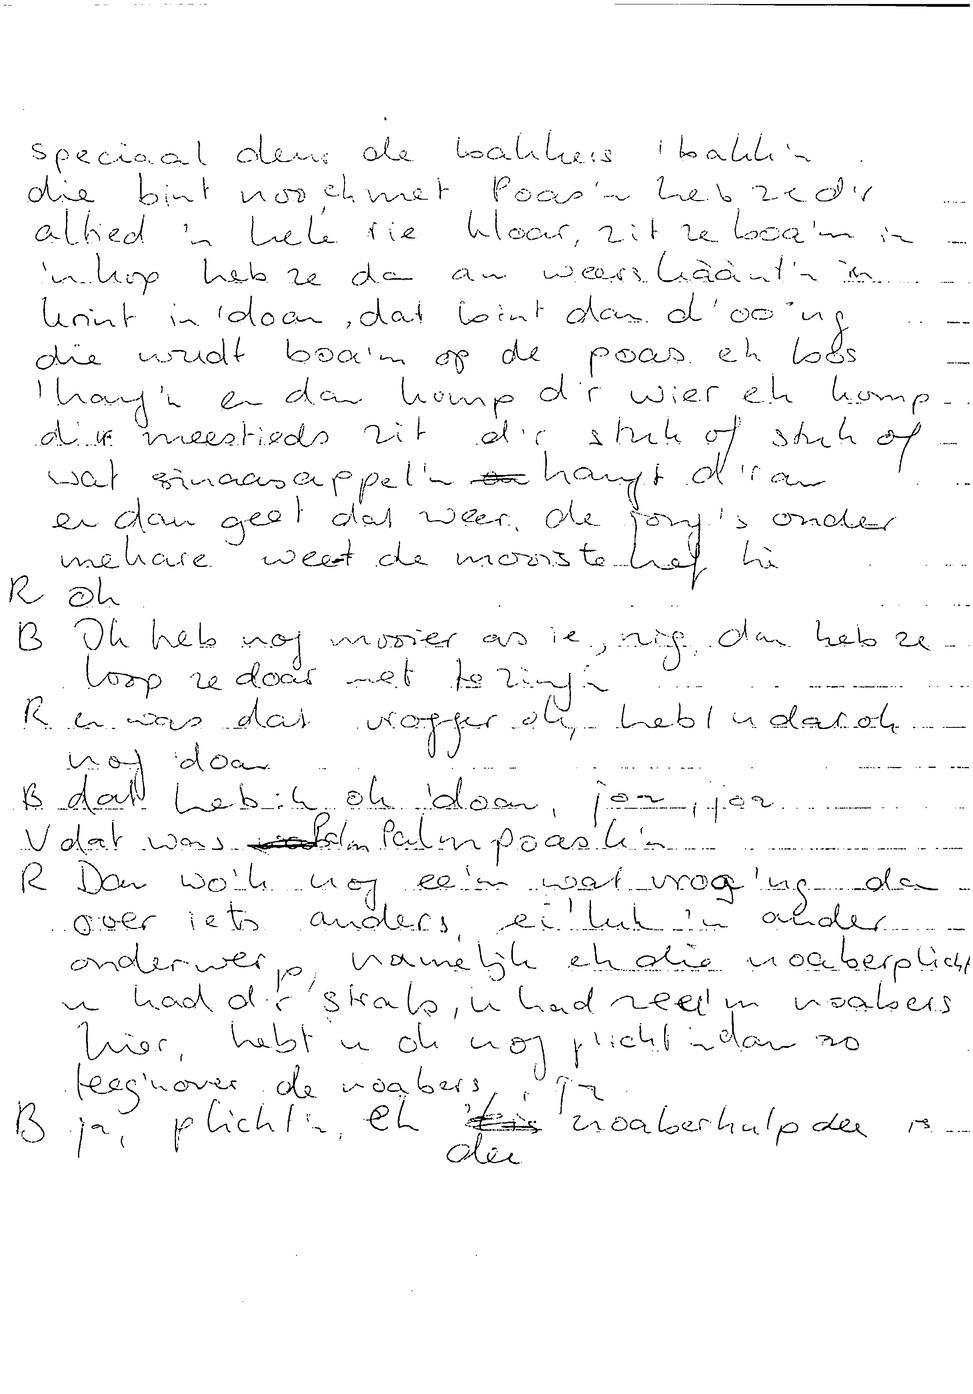 speciaal deur de bakkers 'bakk'n
die bint noo, eh met Poas'n heb ze d'r
altied 'n hele rie kloar, zit ze boa'm in
'n kop heb ze da an weerskààn't'n in
krint in 'doan, dat bint dan d'oo'ng
die wudt boa'm op de poas eh bos
'hang'n en dan komp d'r wier eh komp
d'r meestieds zit d'r stuk of stuk of
wat sinaasappel'n hangt d'r an
en dan geet dat weer, de jong's onder
mekare weet de mooiste hef hè
R oh
B Ik heb nog mooier as ie, nig, dan heb ze
loop ze doar met te zing'n
R en was dat vrogger ok, hebt u dat ok
nog 'doan
B dat heb ik ok 'doan, joa, joa
V dat was Palmpoask'n
R Dan wo'k nog ee'm wat vroag'ng da
over iets anders, ei'luk 'n ander
onderwerp, namelijk eh die noaberplicht
u had d'r straks, u had zeei'm noabers
hier, hebt u ok nog plicht'n dan zo
teeg'nover de noabers, ja
B ja, plicht'n, eh noaberhulp dee is
dee